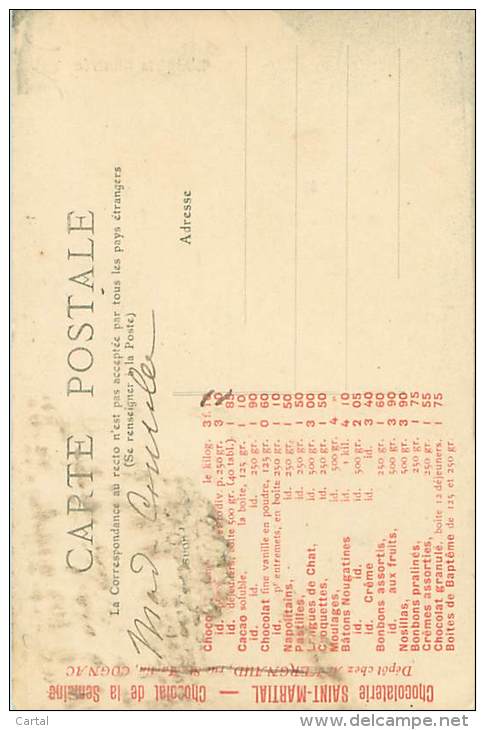 CARTE POSTALE
La Correspondance au recto n'est pas acceptée par tous les pays étrangers
(Se renseigner à la Poste)
Adresse
le kilog. 3 f.
p. 250 gr. 3
id. boîte 500 gr. (40 tabl.) 1 85
Cacao soluble, la boîte, 125 gr. 1 10
id. id. 250 gr. 1 90
Chocolat fine vanille en poudre, 125 gr. 0 60
id. pr entremets, en boîte 250 gr. 1 10
Napolitains, id. 250 gr. 1 50
Pastilles, id. 250 gr. 1 50
Langues de Chat, id. 500 gr. 3 00
Croquettes, id. 250 gr. 1 50
Moulages, id. 500 gr. 4
Bâtons Nougatines 1 kil. 4 10
id. id. id. 250 gr. 2 05
id. Crème id. 500 gr. 3 40
Bonbons assortis, id. 250 gr. 3 60
id. aux fruits, id. 250 gr. 3 90
Nosillas, id. 500 gr. 3 90
Bonbons pralinés, id. 250 gr. 1 75
Crèmes assorties, id. 250 gr. 1 55
Chocolat granulé, boîte 12 déjeuners. 1 75
Boîtes de Baptême de 125 et 250 gr.
Chocolaterie SAINT-MARTIAL — Chocolat de la Semaine
Dépôt chez rue COGNAC
Cartal
www.delcampe.net